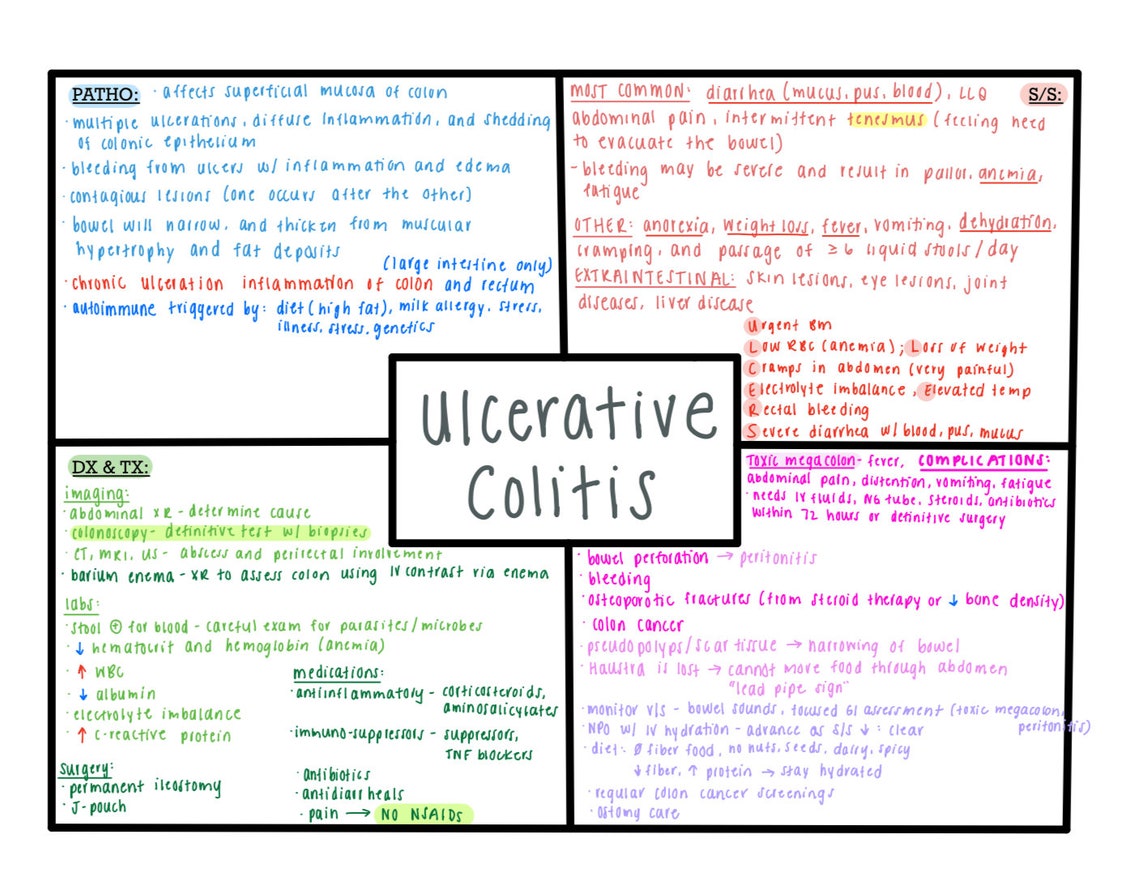 PATHO: · affects superficial mucosa of colon
· multiple ulcerations, diffuse inflammation, and shedding
of colonic epithelium
· bleeding from ulcers w/ inflammation and edema
· contagious lesions (one occurs after the other)
· bowel will narrow, and thicken from muscular
hypertrophy and fat deposits
(large intestine only)
· chronic ulceration inflammation of colon and rectum
· autoimmune triggered by: diet (high fat), milk allergy, stress,
illness, stress, genetics
MOST COMMON: diarrhea (mucus, pus, blood), LLQ S/S:
abdominal pain, intermittent tenesmus (feeling need
to evacuate the bowel)
- bleeding may be severe and result in pallor, anemia,
fatigue
OTHER: anorexia, weight loss, fever, vomiting, dehydration,
cramping, and passage of ≥ 6 liquid stools/day
EXTRAINTESTINAL: skin lesions, eye lesions, joint
diseases, liver disease
Urgent BM
Low RBC (anemia); Loss of weight
Cramps in abdomen (very painful)
Electrolyte imbalance, Elevated temp
Rectal bleeding
Severe diarrhea w/ blood, pus, mucus
Ulcerative
Colitis
DX & TX:
imaging:
· abdominal XR - determine cause
· colonoscopy - definitive test w/ biopsies
· CT, MRI, US - abscess and perirectal involvement
· barium enema - XR to assess colon using IV contrast via enema
labs:
· stool ⊕ for blood - careful exam for parasites/microbes
· ↓ hematocrit and hemoglobin (anemia)
· ↑ WBC
· ↓ albumin
· electrolyte imbalance
· ↑ c-reactive protein
surgery:
· permanent ileostomy
· J-pouch
medications:
· antiinflammatory - corticosteroids,
aminosalicylates
· immuno-suppressors - suppressors,
TNF blockers
· antibiotics
· antidiarrheals
· pain → NO NSAIDs
Toxic megacolon - fever, COMPLICATIONS:
abdominal pain, distention, vomiting, fatigue
· needs IV fluids, NG tube, steroids, antibiotics
within 72 hours or definitive surgery
· bowel perforation → peritonitis
· bleeding
· osteoporotic fractures (from steroid therapy or ↓ bone density)
· colon cancer
· pseudopolyps/scar tissue → narrowing of bowel
· Haustra is lost → cannot move food through abdomen
"lead pipe sign"
· monitor v/s - bowel sounds, focused GI assessment (toxic megacolon,
peritonitis)
· NPO w/ IV hydration - advance as s/s ↓ : clear
· diet: Ø fiber food, no nuts, seeds, dairy, spicy
↓ fiber, ↑ protein → stay hydrated
· regular colon cancer screenings
· ostomy care